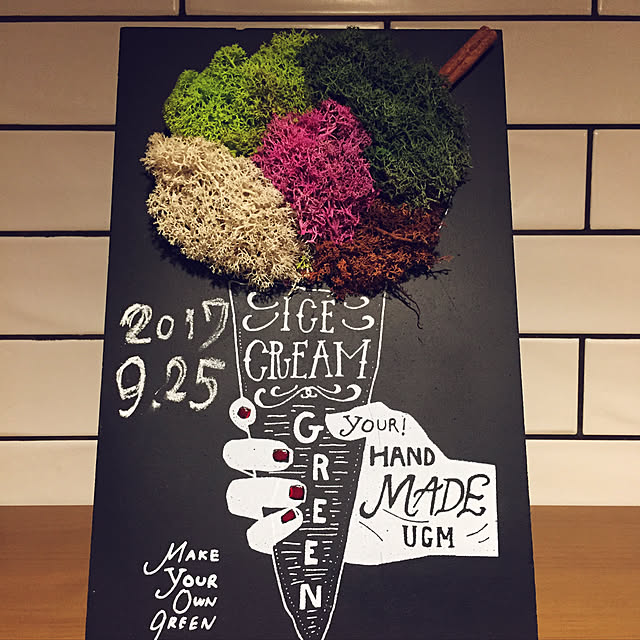 2017
9.25
ICE
CREAM
GREEN
YOUR!
HAND
MADE
UGM
MAKE
YOUR
OWN
GREEN